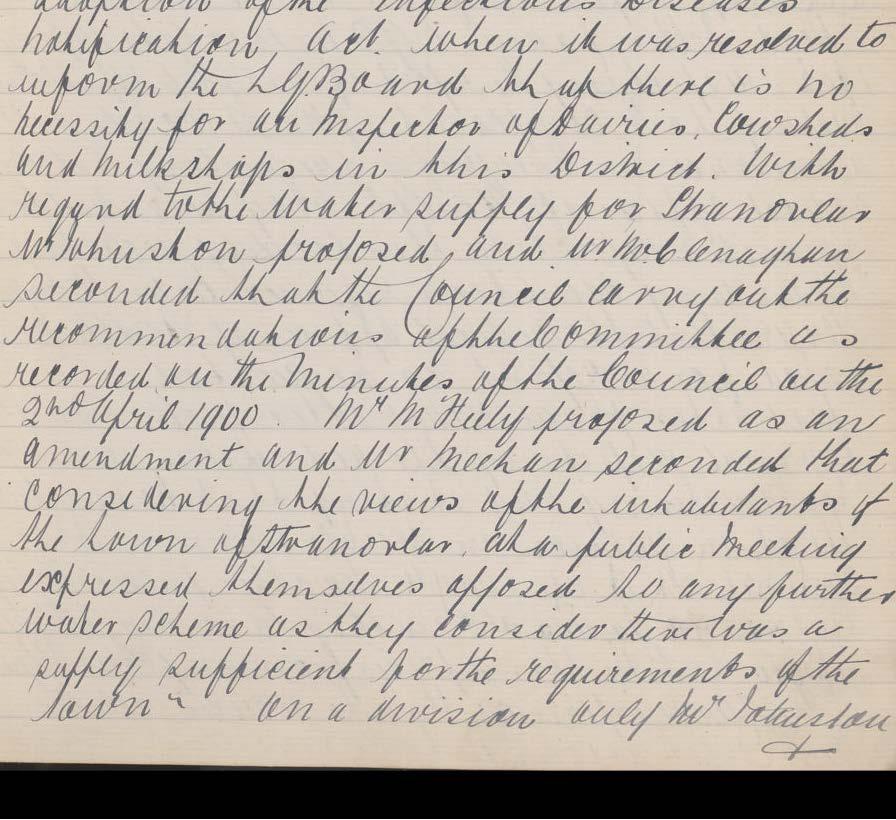 adoption of the Infectious Diseases
notification Act. when it was resolved to
inform the LGBoard that there is no
necessity for an Inspector of Dairies, Cowsheds
and Milkshops in this District. With
regard to the water supply for Stranorlar
Mr Johnston proposed and Mr McClenaghan
seconded that the Council carry out the
recommendations of the Committee as
recorded on the Minutes of the Council on the
2nd April 1900. Mr McFeely proposed as an
amendment and Mr Meehan seconded that
considering the views of the inhabitants of
the town of Stranorlar, at a public Meeting
expressed themselves opposed to any further
water scheme as they consider there was a
supply sufficient for the requirements of the
town" On a division only Mr Johnston